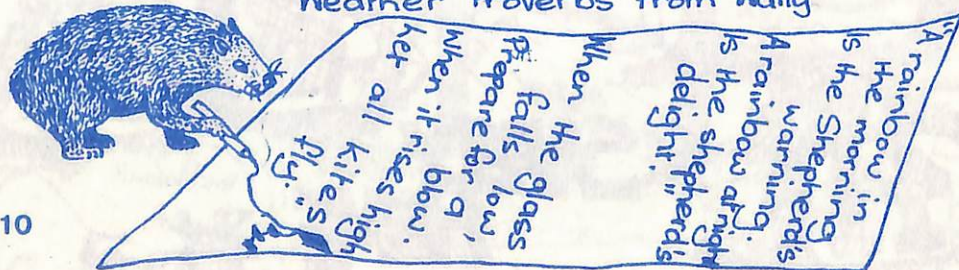 Weather Proverbs from Wally
"A rainbow in
the morning
Is the Shepherd's
warning.
A rainbow at night
Is the shepherd's
delight"
When the glass
falls low,
Prepare for a
blow.
When it rises high
let all kites
fly."
10